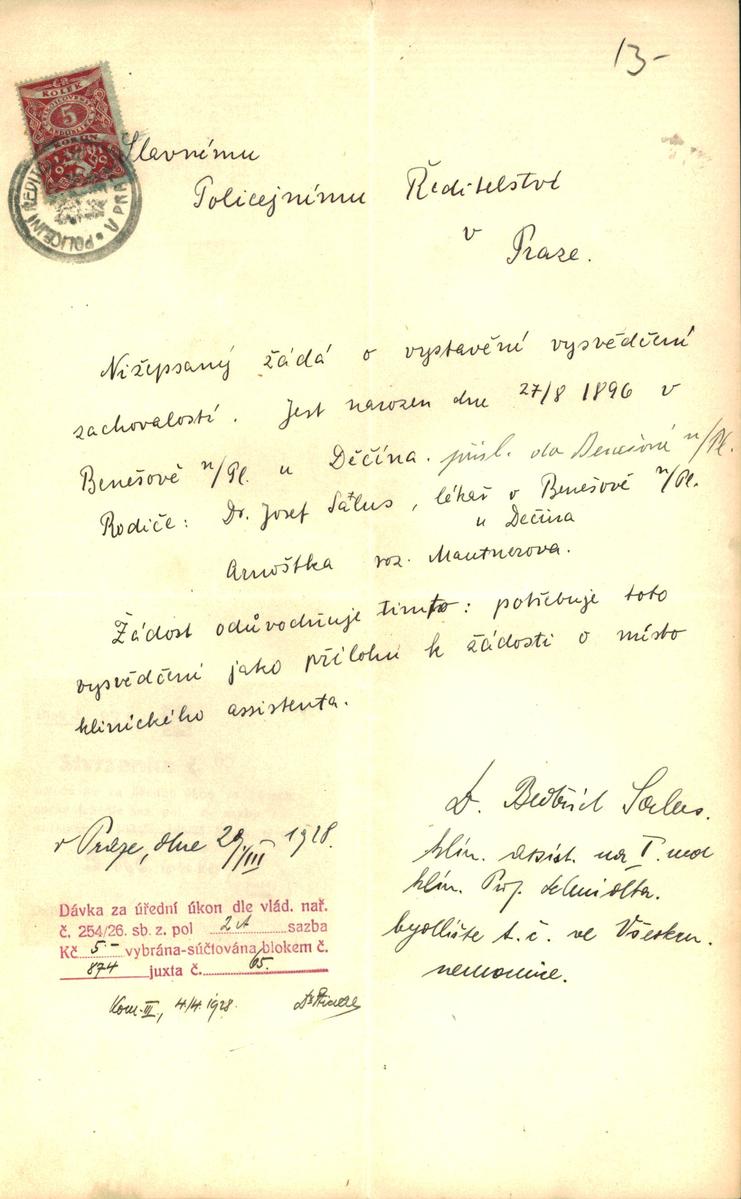 13-
KOLEK
5
KORUN
POLICEJNÍ ŘEDIT V PRA
Slavnému
Policejnímu Ředitelství
v
Praze.
Nížepsaný žádá o vystavění vysvědčení
zachovalostí. Jest narozen dne 27/8 1896 v
Benešově n/Pl. u Děčína. přísl. do Benešova n/Pl.
Rodiče: Dr. Josef Salus, lékař v Benešově n/Pl.
u Děčína
Arnoštka roz. Mautnerova.
Žádost odůvodňuje tímto: potřebuje toto
vysvědčení jako přílohu k žádosti o místo
klinického assistenta.
Dr. Bedřich Salus.
klin. assist. na I. med
klin. Prof. Schmidta.
bydliště t. č. ve Všeobec.
nemocnice.
v Praze, dne 29/III 1928.
Dávka za úřední úkon dle vlád. nař.
č. 254/26. sb. z. pol 2A sazba
Kč 5.- vybrána-súčtována blokem č.
874 juxta č. 65.
Kom. III, 4/4 1928.